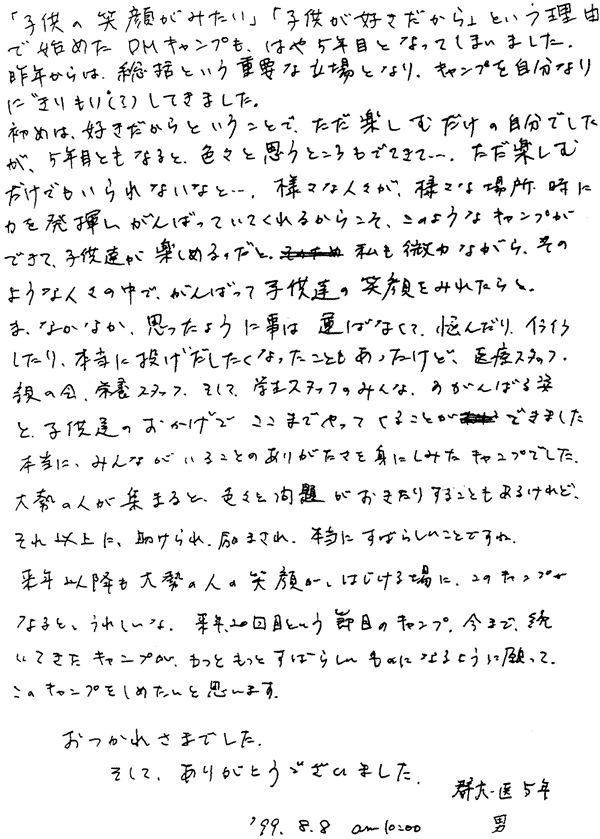 「子供の笑顔がみたい」「子供が好きだから」という理由
で始めたDMキャンプも、はや5年目となってしまいました。
昨年からは、総括という重要な立場となり、キャンプを自分なり
にきりもり(?)してきました。
初めは、好きだからということで、ただ楽しむだけの自分でした
が、5年目ともなると、色々と思うところもでてきて…。ただ楽しむ
だけでもいられないなと…。様々な人々が、様々な場所・時に
力を発揮しがんばっていてくれるからこそ、このようなキャンプが
できて、子供達が楽しめるのだと。私も微力ながら、その
ような人々の中で、がんばって子供達の笑顔をみれたらと。
ま、なかなか、思ったように事は運ばなくて、悩んだり、イライラ
したり、本当に投げだしたくなったこともあったけど、医療スタッフ、
親の会、栄養スタッフ、そして、学生スタッフのみんな、のがんばる姿
と、子供達のおかげでここまでやってくることができました
本当に、みんながいることのありがたさを身にしみたキャンプでした。
大勢の人が集まると、色々と問題がおきたりすることもあるけれど、
それ以上に、助けられ、励まされ、本当にすばらしいことですね。
来年以降も大勢の人の笑顔が、はじける場に、このキャンプが
なると、うれしいな。来年、20回目という節目のキャンプ。今まで、続
いてきたキャンプが、もっともっとすばらしいものになるように願って、
このキャンプをしめたいと思います。
おつかれさまでした。
そして、ありがとうございました。
群大・医5年
男
'99. 8. 8 am10:00